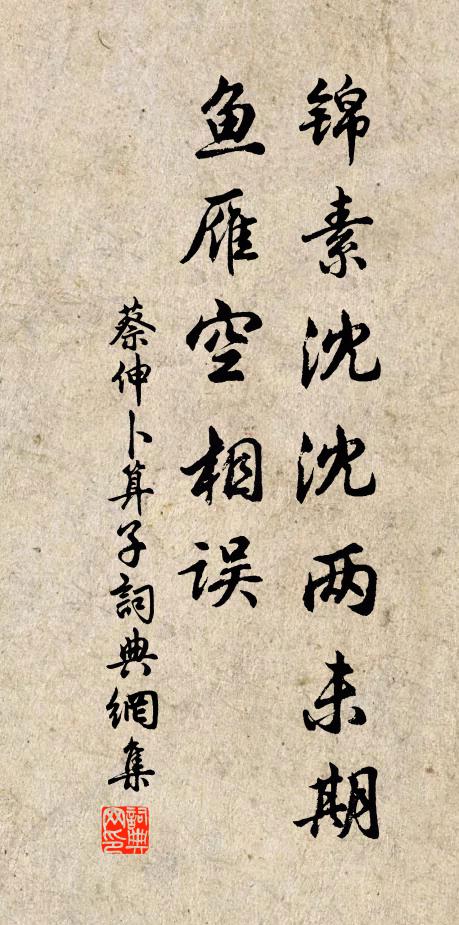 锦素沈沈两未期
鱼雁空相误
蔡伸卜算子詞典網集
詞典网印